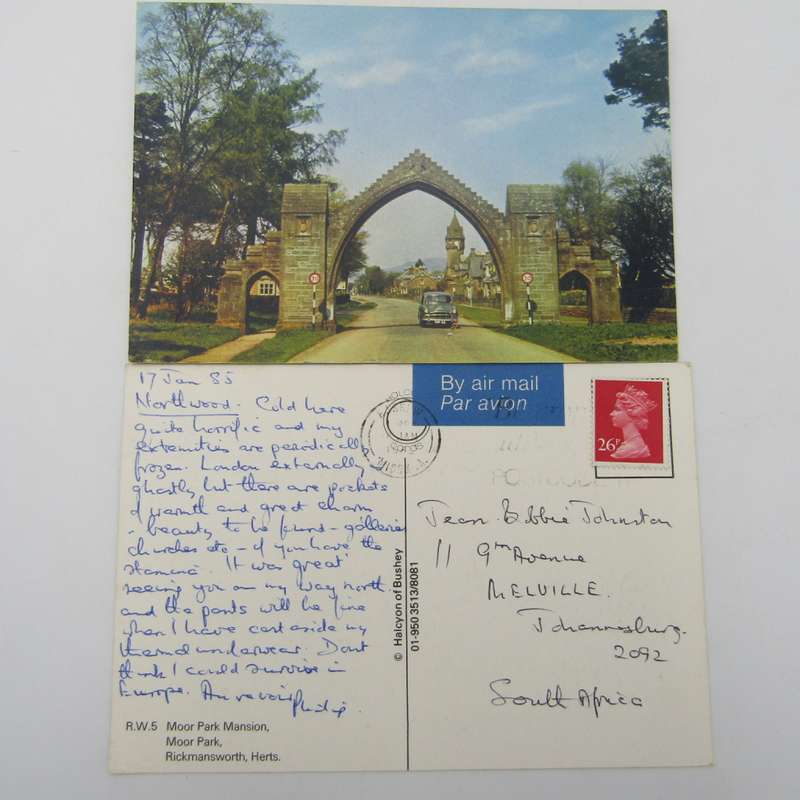 17 Jan 85
Northwood. Cold here
quite horrific and my
extremities are periodically
frozen. London externally
ghastly but there are pockets
of warmth and great charm
- beauty to be found - galleries
churches etc - if you have the
stamina. It was great
seeing you on my way north.
and the pants will be fine
when I have cast aside my
thermal underwear. Dont
think I could survive in
Europe. Au revoir
Philip.
R.W.5 Moor Park Mansion,
Moor Park,
Rickmansworth, Herts.
© Halcyon of Bushey
01-950 3513/8081
By air mail
Par avion
26P
Jean & Debbie Johnston
11 9th Avenue
MELVILLE.
Johannesburg.
2092
South Africa